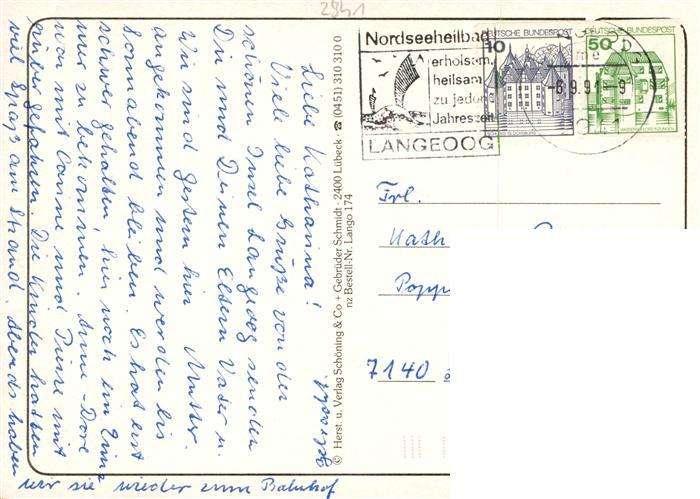 2941
Liebe Katharina!
Viele liebe Grüße von der
schönen Insel Langeoog senden
Dir und Deinen Eltern Vater u.
Mutter.
Wir sind gestern hier
angekommen und werden bis
Sonnabend bleiben. Es hat erst
schwer gehalten, hier noch ein Zim-
mer zu bekommen. Anne-Dore
war mit Canne und Pierre mit
rüber gefahren. Die Kinder hatten
viel Spaß am Strand. Abends haben
wir sie wieder zum Bahnhof
gebracht.
© Herst. u. Verlag Schöning & Co + Gebrüder Schmidt · 2400 Lübeck · ☎ (0451) 310 310 0
nz Bestell-Nr. Lango 174
Nordseeheilbad
erholsam,
heilsam,
zu jeder
Jahreszeit
LANGEOOG
DEUTSCHE BUNDESPOST
10
DEUTSCHE BUNDESPOST
50
-6.9.91-9
Frl.
Kath
Popp
7140